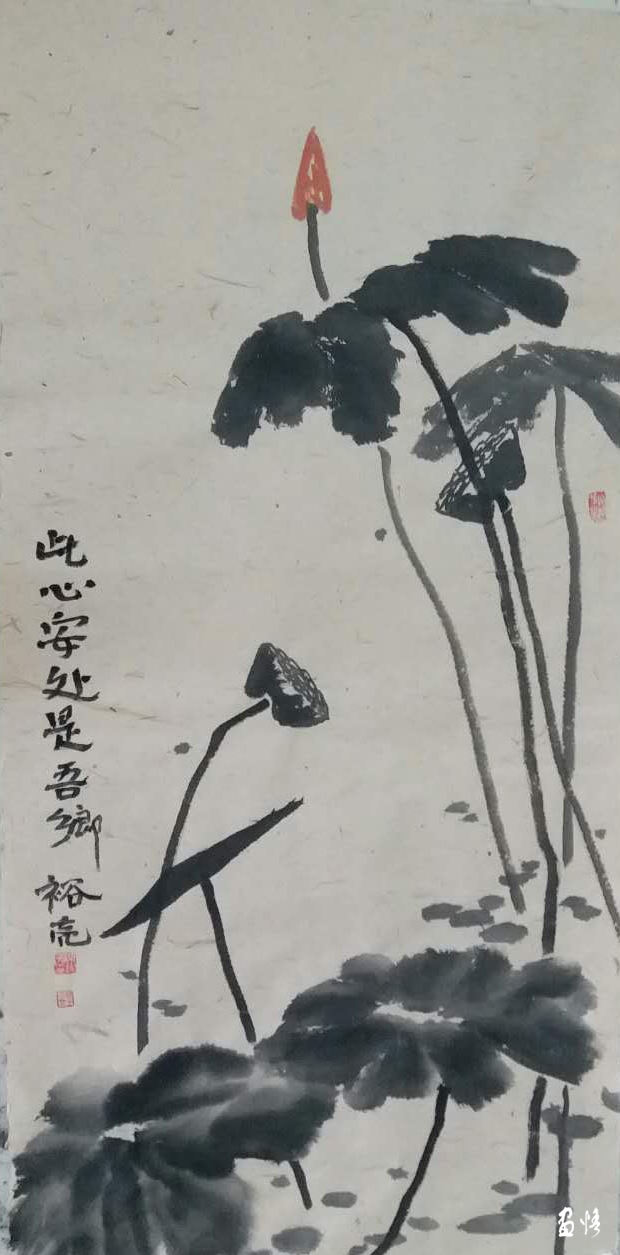 此心安处是吾鄉
裕亮
画悟